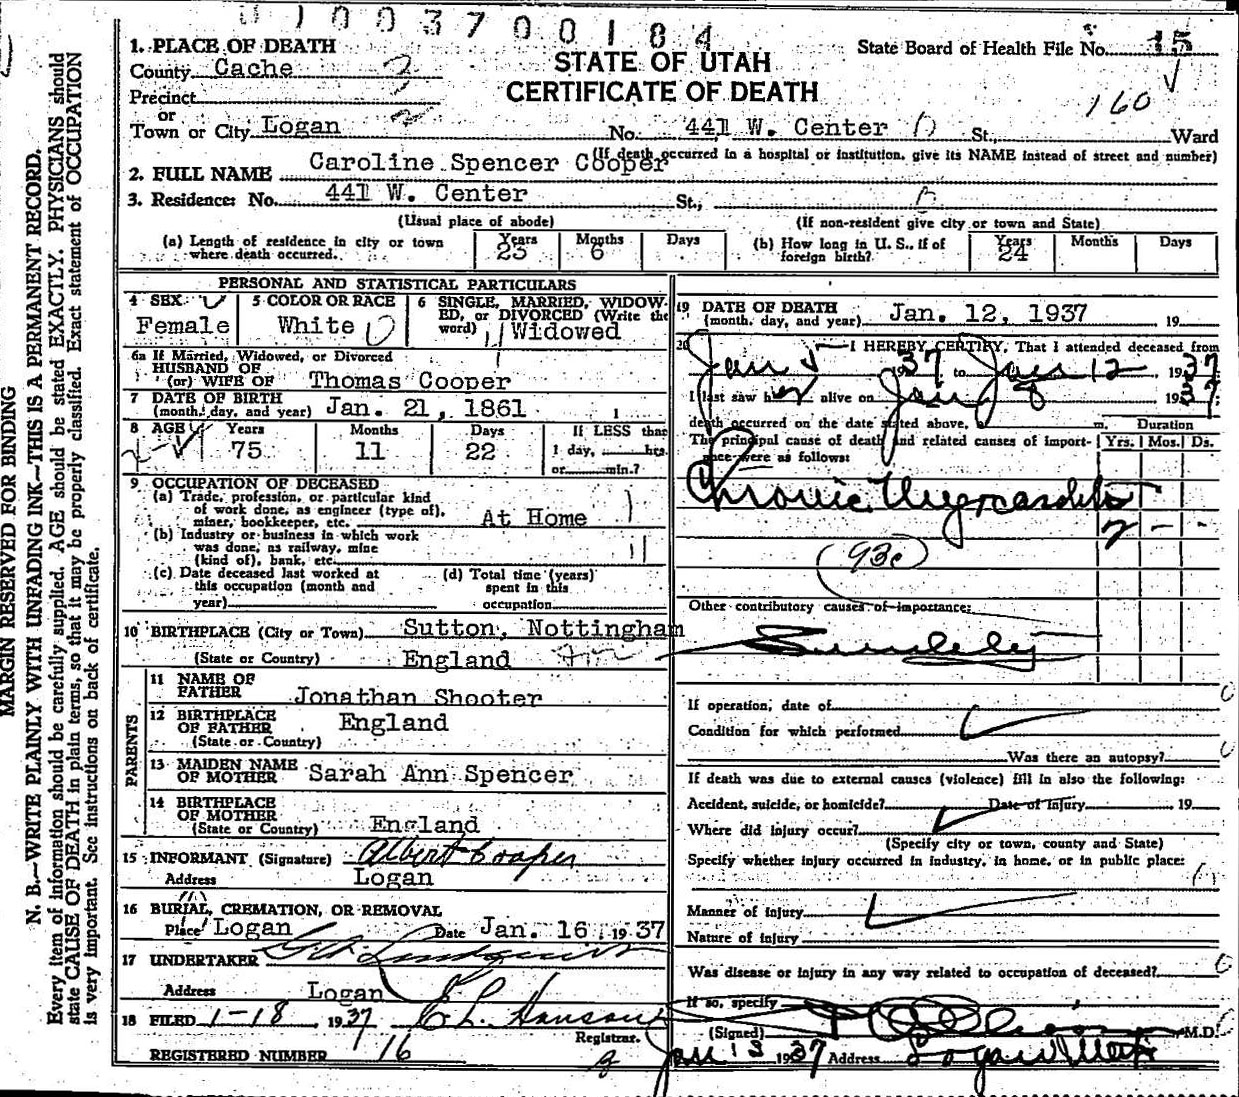 0100370 0184
MARGIN RESERVED FOR BINDING
N. B.—WRITE PLAINLY WITH UNFADING INK—THIS IS A PERMANENT RECORD.
Every item of information should be carefully supplied. AGE should be stated EXACTLY. PHYSICIANS should
state CAUSE OF DEATH in plain terms, so that it may be properly classified. Exact statement of OCCUPATION
is very important. See instructions on back of certificate.
1. PLACE OF DEATH
County Cache 3
Precinct
or 2
Town or City Logan
STATE OF UTAH
CERTIFICATE OF DEATH
State Board of Health File No. 15
160
No. 441 W. Center St., Ward
(If death occurred in a hospital or institution, give its NAME instead of street and number)
2. FULL NAME Caroline Spencer Cooper
3. Residence: No. 441 W. Center St.,
(Usual place of abode) (If non-resident give city or town and State)
(a) Length of residence in city or town where death occurred. Years 23 Months 6 Days
(b) How long in U. S., if of foreign birth? Years 24 Months Days
PERSONAL AND STATISTICAL PARTICULARS
4 SEX Female
5 COLOR OR RACE White
6 SINGLE, MARRIED, WIDOWED, or DIVORCED (Write the word) Widowed
6a If Married, Widowed, or Divorced
HUSBAND OF
(or) WIFE OF Thomas Cooper
7 DATE OF BIRTH
(month, day, and year) Jan. 21, 1861
8 AGE Years Months Days If LESS than
75 11 22 1 day, hrs.
or min.?
9 OCCUPATION OF DECEASED
(a) Trade, profession, or particular kind
of work done, as engineer (type of),
miner, bookkeeper, etc. At Home
(b) Industry or business in which work
was done, as railway, mine
(kind of), bank, etc.
(c) Date deceased last worked at
this occupation (month and
year)
(d) Total time (years)
spent in this
occupation
10 BIRTHPLACE (City or Town) Sutton, Nottingham
(State or Country) England
PARENTS
11 NAME OF
FATHER Jonathan Shooter
12 BIRTHPLACE
OF FATHER England
(State or Country)
13 MAIDEN NAME
OF MOTHER Sarah Ann Spencer
14 BIRTHPLACE
OF MOTHER
(State or Country) England
15 INFORMANT (Signature) Albert Cooper
Address Logan
16 BURIAL, CREMATION, OR REMOVAL
Place Logan Date Jan. 16, 1937
17 UNDERTAKER
Address Logan
18 FILED 1-18 1937 E L. Hanson
Registrar.
REGISTERED NUMBER 16
19 DATE OF DEATH
(month, day, and year) Jan. 12, 1937 19
20 I HEREBY CERTIFY, That I attended deceased from
Jan 1937 to Jan 12, 1937
I last saw her alive on Jan 8 1937
death occurred on the date stated above, m. Duration
The principal cause of death and related causes of importance were as follows: Yrs. Mos. Ds.
Chronic Myocarditis
2 - -
93c
Other contributory causes of importance:
Senility
If operation, date of
Condition for which performed
Was there an autopsy?
If death was due to external causes (violence) fill in also the following:
Accident, suicide, or homicide? Date of injury 19
Where did injury occur?
(Specify city or town, county and State)
Specify whether injury occurred in industry, in home, or in public place:
Manner of Injury
Nature of Injury
Was disease or injury in any way related to occupation of deceased?
If so, specify
(Signed) M.D.
Jan 13 1937 Address Logan Utah